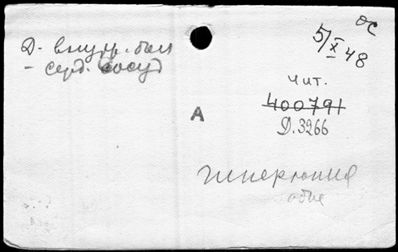 Д. внутр. бол
- серд. сосуд
ОС
5/X 48
Чит.
400791
Д.3266
А
гипертония